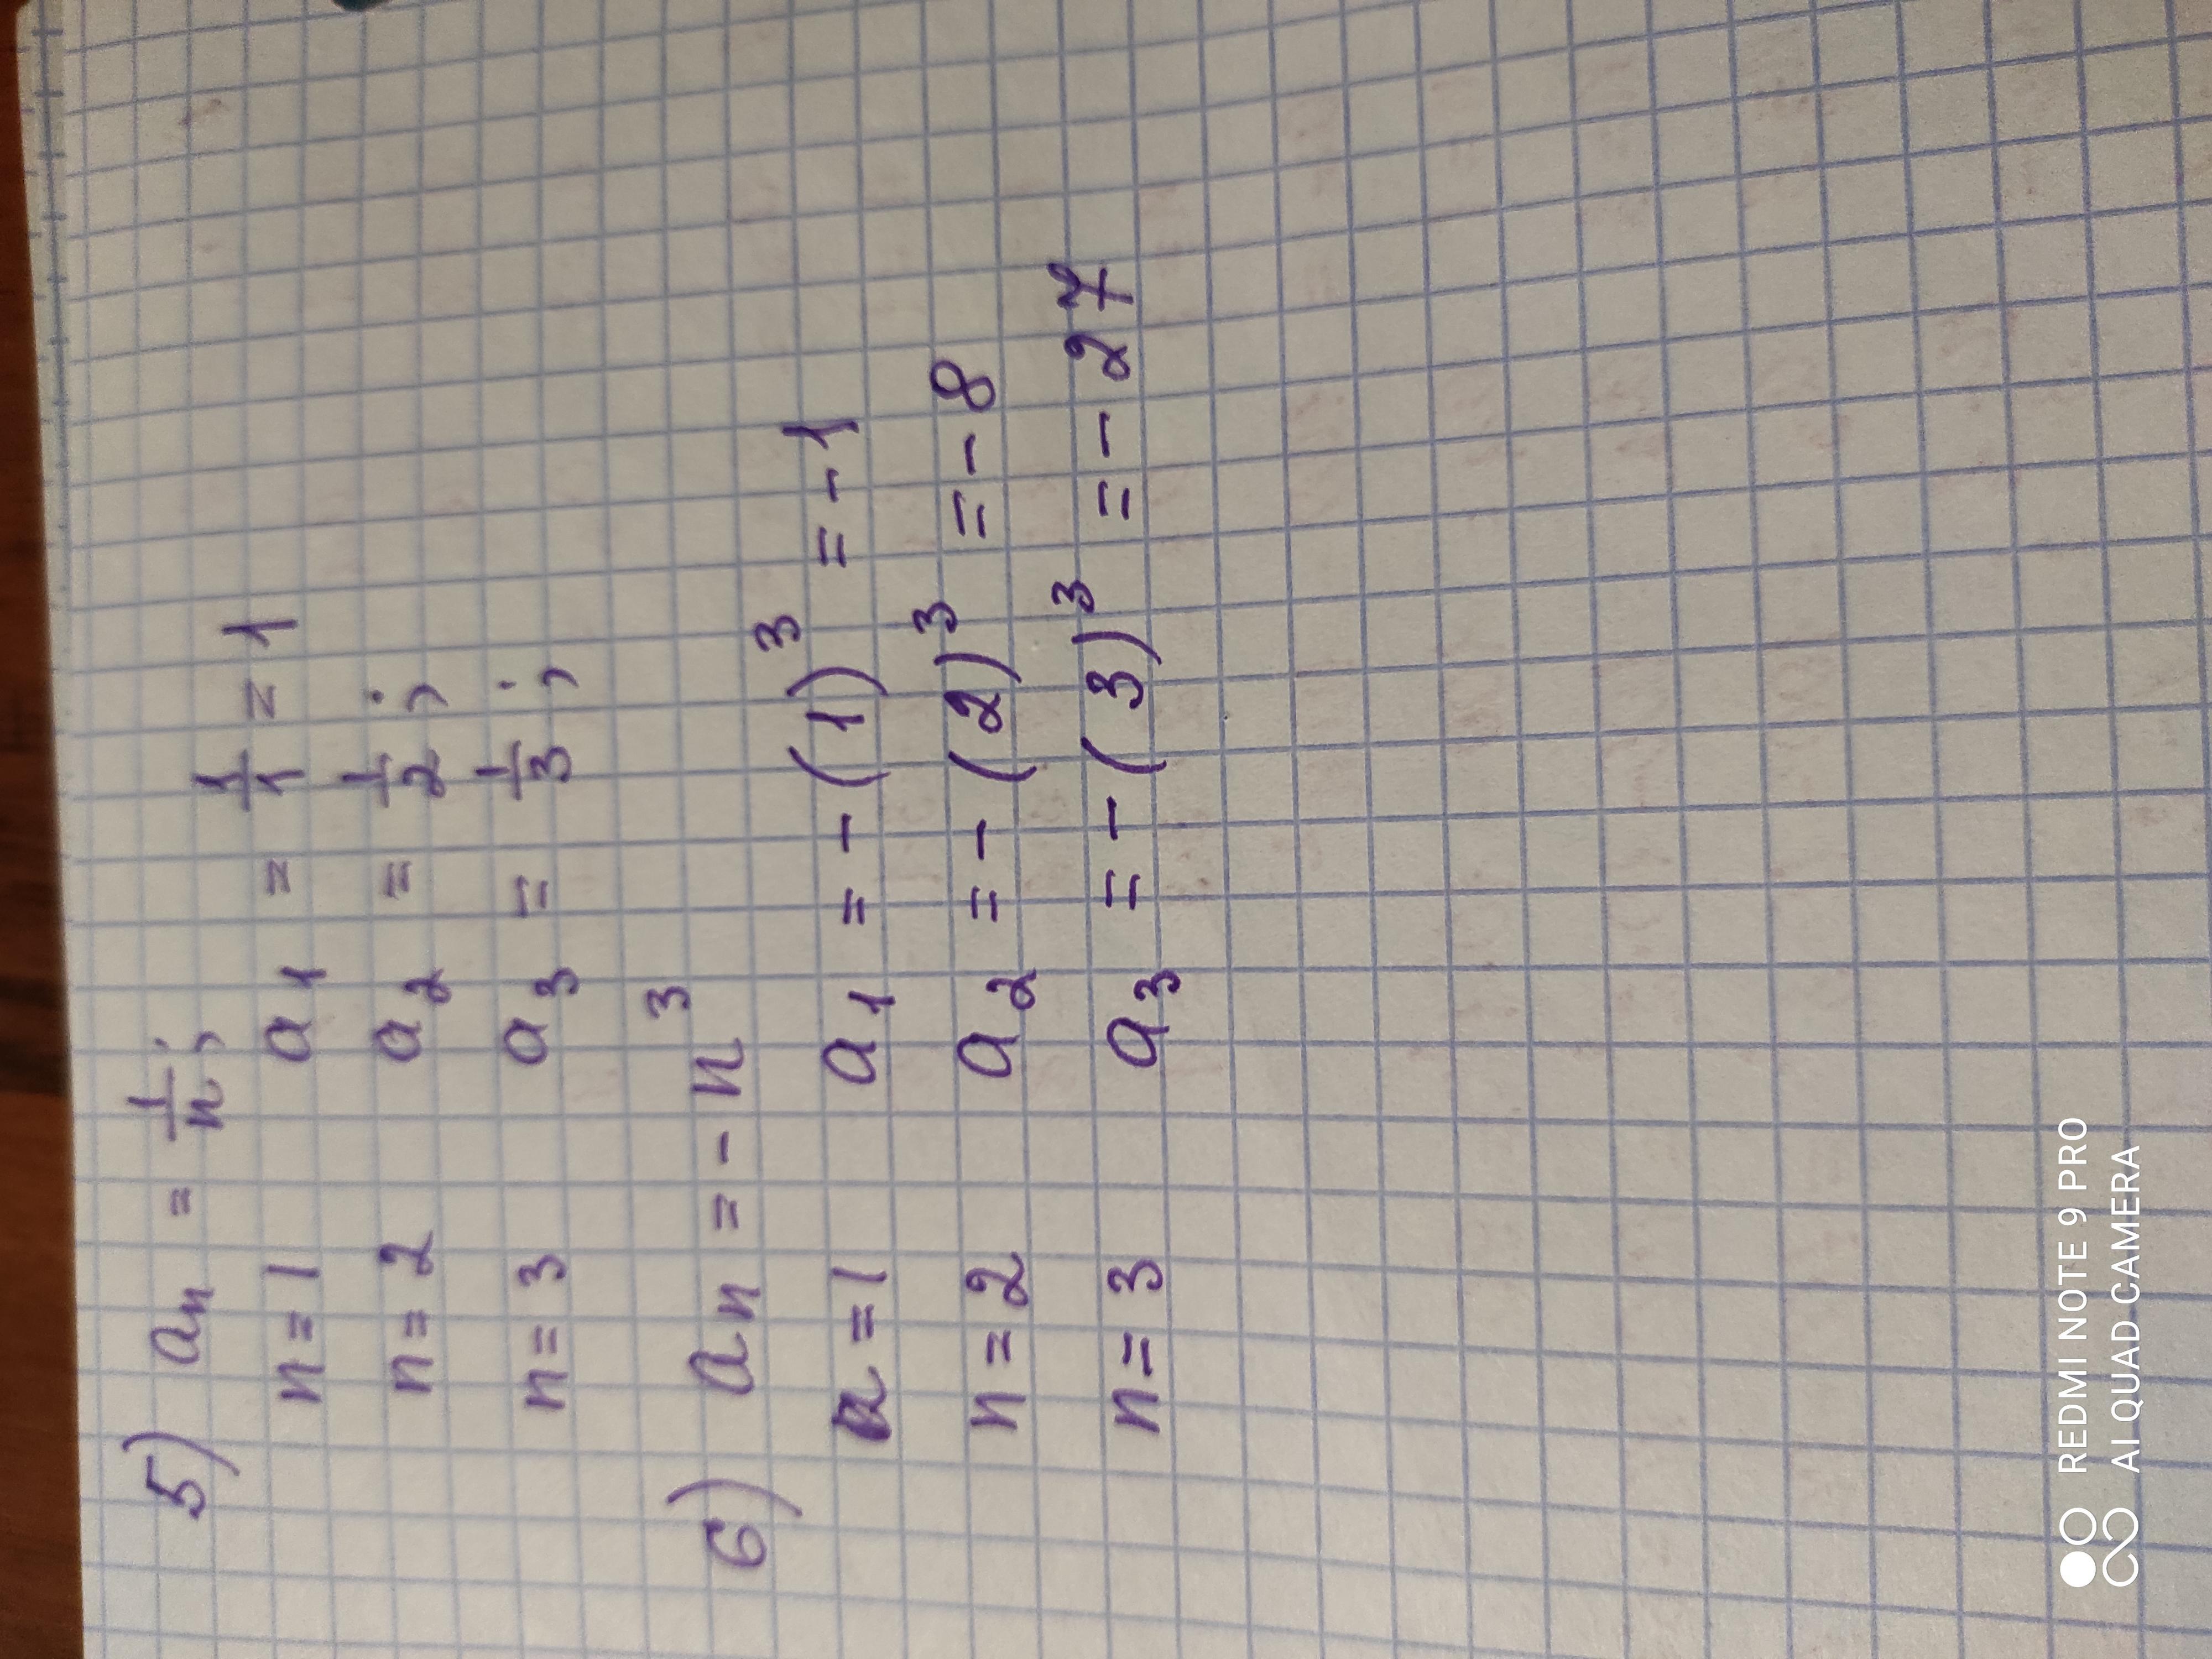 5) aₙ = 1/n;
n=1 a₁ = 1/1 = 1
n=2 a₂ = 1/2;
n=3 a₃ = 1/3;
6) aₙ = -n³
n=1 a₁ = -(1)³ = -1
n=2 a₂ = -(2)³ = -8
n=3 a₃ = -(3)³ = -27
REDMI NOTE 9 PRO
AI QUAD CAMERA